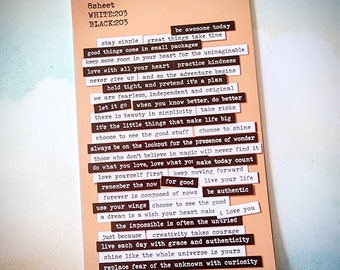 8sheet
WHITE:203
BLACK:203
be awesome today
stay simple great things take time
good things come in small packages
keep some room in your heart for the unimaginable
love with all your heart practice kindness
never give up and so the adventure begins
hold tight, and pretend it's a plan
we are fearless, independent and original
let it go when you know better, do better
there is beauty in simplicity take risks
it's the little things that make life big
choose to see the good stuff choose to shine
always be on the lookout for the presence of wonder
those who don't believe in magic will never find it
do what you love, love what you make today count
love yourself first keep moving forward
remember the now for good live your life
forever is composed of nows be authentic
use your wings choose to see the good
a dream is a wish your heart makes i love you
the impossible is often the untried
just because creativity takes courage
live each day with grace and authenticity
shine like the whole universe is yours
replace fear of the unknown with curiosity